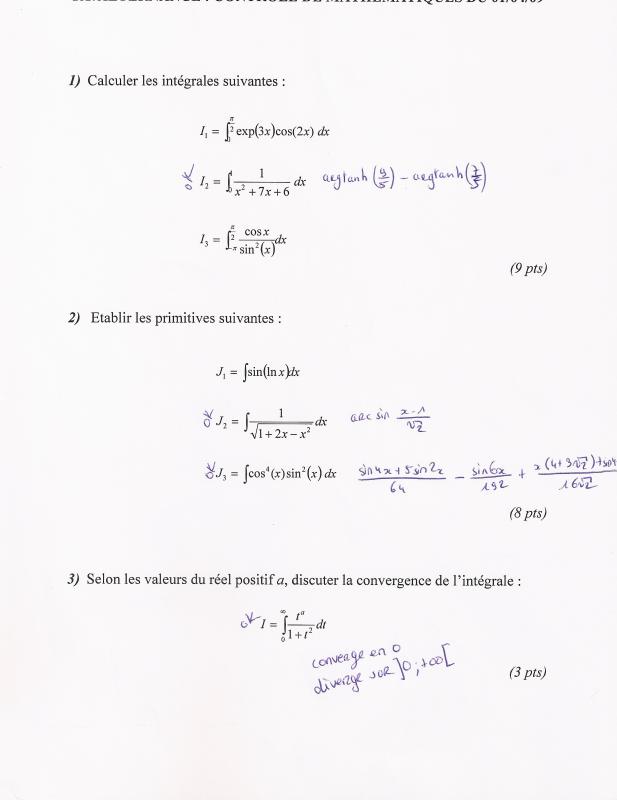 CONTRÔLE DE MATHÉMATIQUES DU 01/04/09
1) Calculer les intégrales suivantes :
I₁ = ∫₀^(π/2) exp(3x)cos(2x) dx
OK I₂ = ∫₀ 1/(x² + 7x + 6) dx argtanh (9/5) – argtanh (7/5)
I₃ = ∫_(-π)^(π/2) cos x / sin²(x) dx
(9 pts)
2) Etablir les primitives suivantes :
J₁ = ∫sin(ln x)dx
OK J₂ = ∫ 1/√(1 + 2x – x²) dx arc sin (x-1)/√2
OK J₃ = ∫cos⁴(x)sin²(x) dx (sin4x + 5sin2x)/64 – sin6x/192 + x(4+3√2)+sin4/16√2
(8 pts)
3) Selon les valeurs du réel positif a, discuter la convergence de l'intégrale :
OK I = ∫₀^∞ t^a/(1 + t²) dt
converge en 0
diverge sur ]0 ; +oo[
(3 pts)